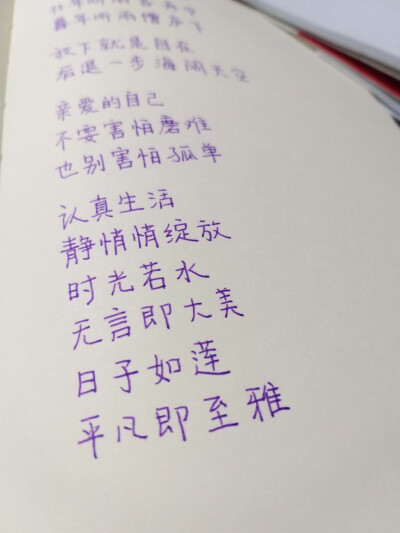 年听雨客舟中
暮年听雨僧庐下
放下就是自在
后退一步海阔天空
亲爱的自己
不要害怕磨难
也别害怕孤单
认真生活
静悄悄绽放
时光若水
无言即大美
日子如莲
平凡即至雅